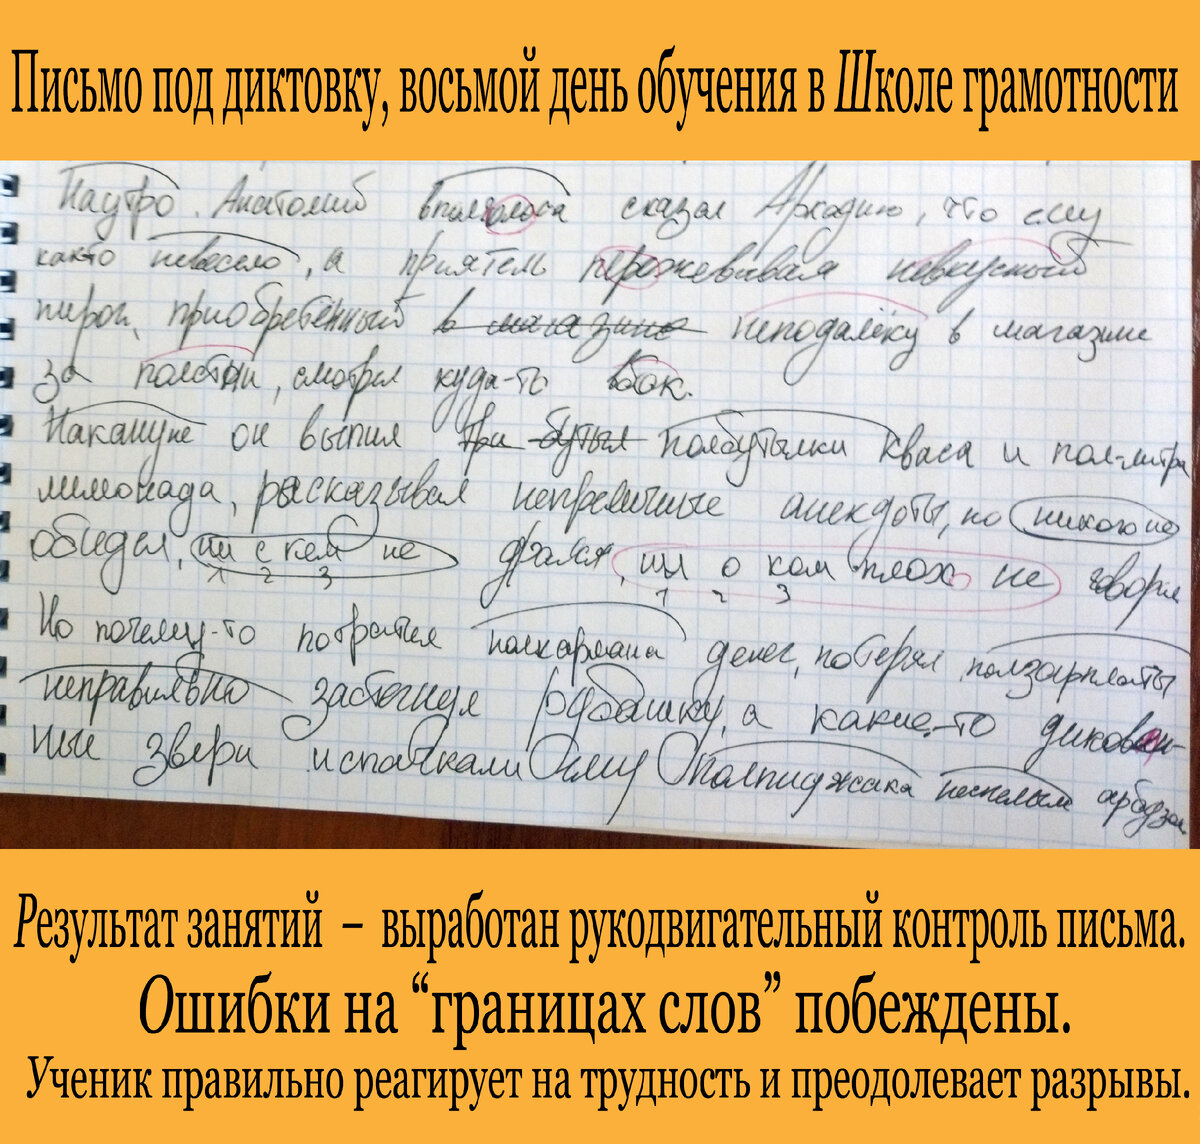 Письмо под диктовку, восьмой день обучения в Школе грамотности
Наутро Анатолий вполголоса сказал Аркадию, что ему
както невесело, а приятель пережевывал невкусный
пирог, приобретённый в магазине неподалёку в магазине
за смотрел куда-то вбок.
Накануне он выпил три бутыл полбутылки кваса и пол-литра
лимонада, рассказывал неприличные анекдоты, но никого не
обидел, ни с кем не дрался, ни о ком плохо не говорил
1 2 3 1 2 3
Но почему-то потратил полкармана денег, потерял ползарплаты
неправильно застегнул рубашку, а какие-то диковин-
ные звери испачкали ему полпиджака неспелым арбузом
Результат занятий – выработан рукодвигательный контроль письма.
Ошибки на “границах слов” побеждены.
Ученик правильно реагирует на трудность и преодолевает разрывы.